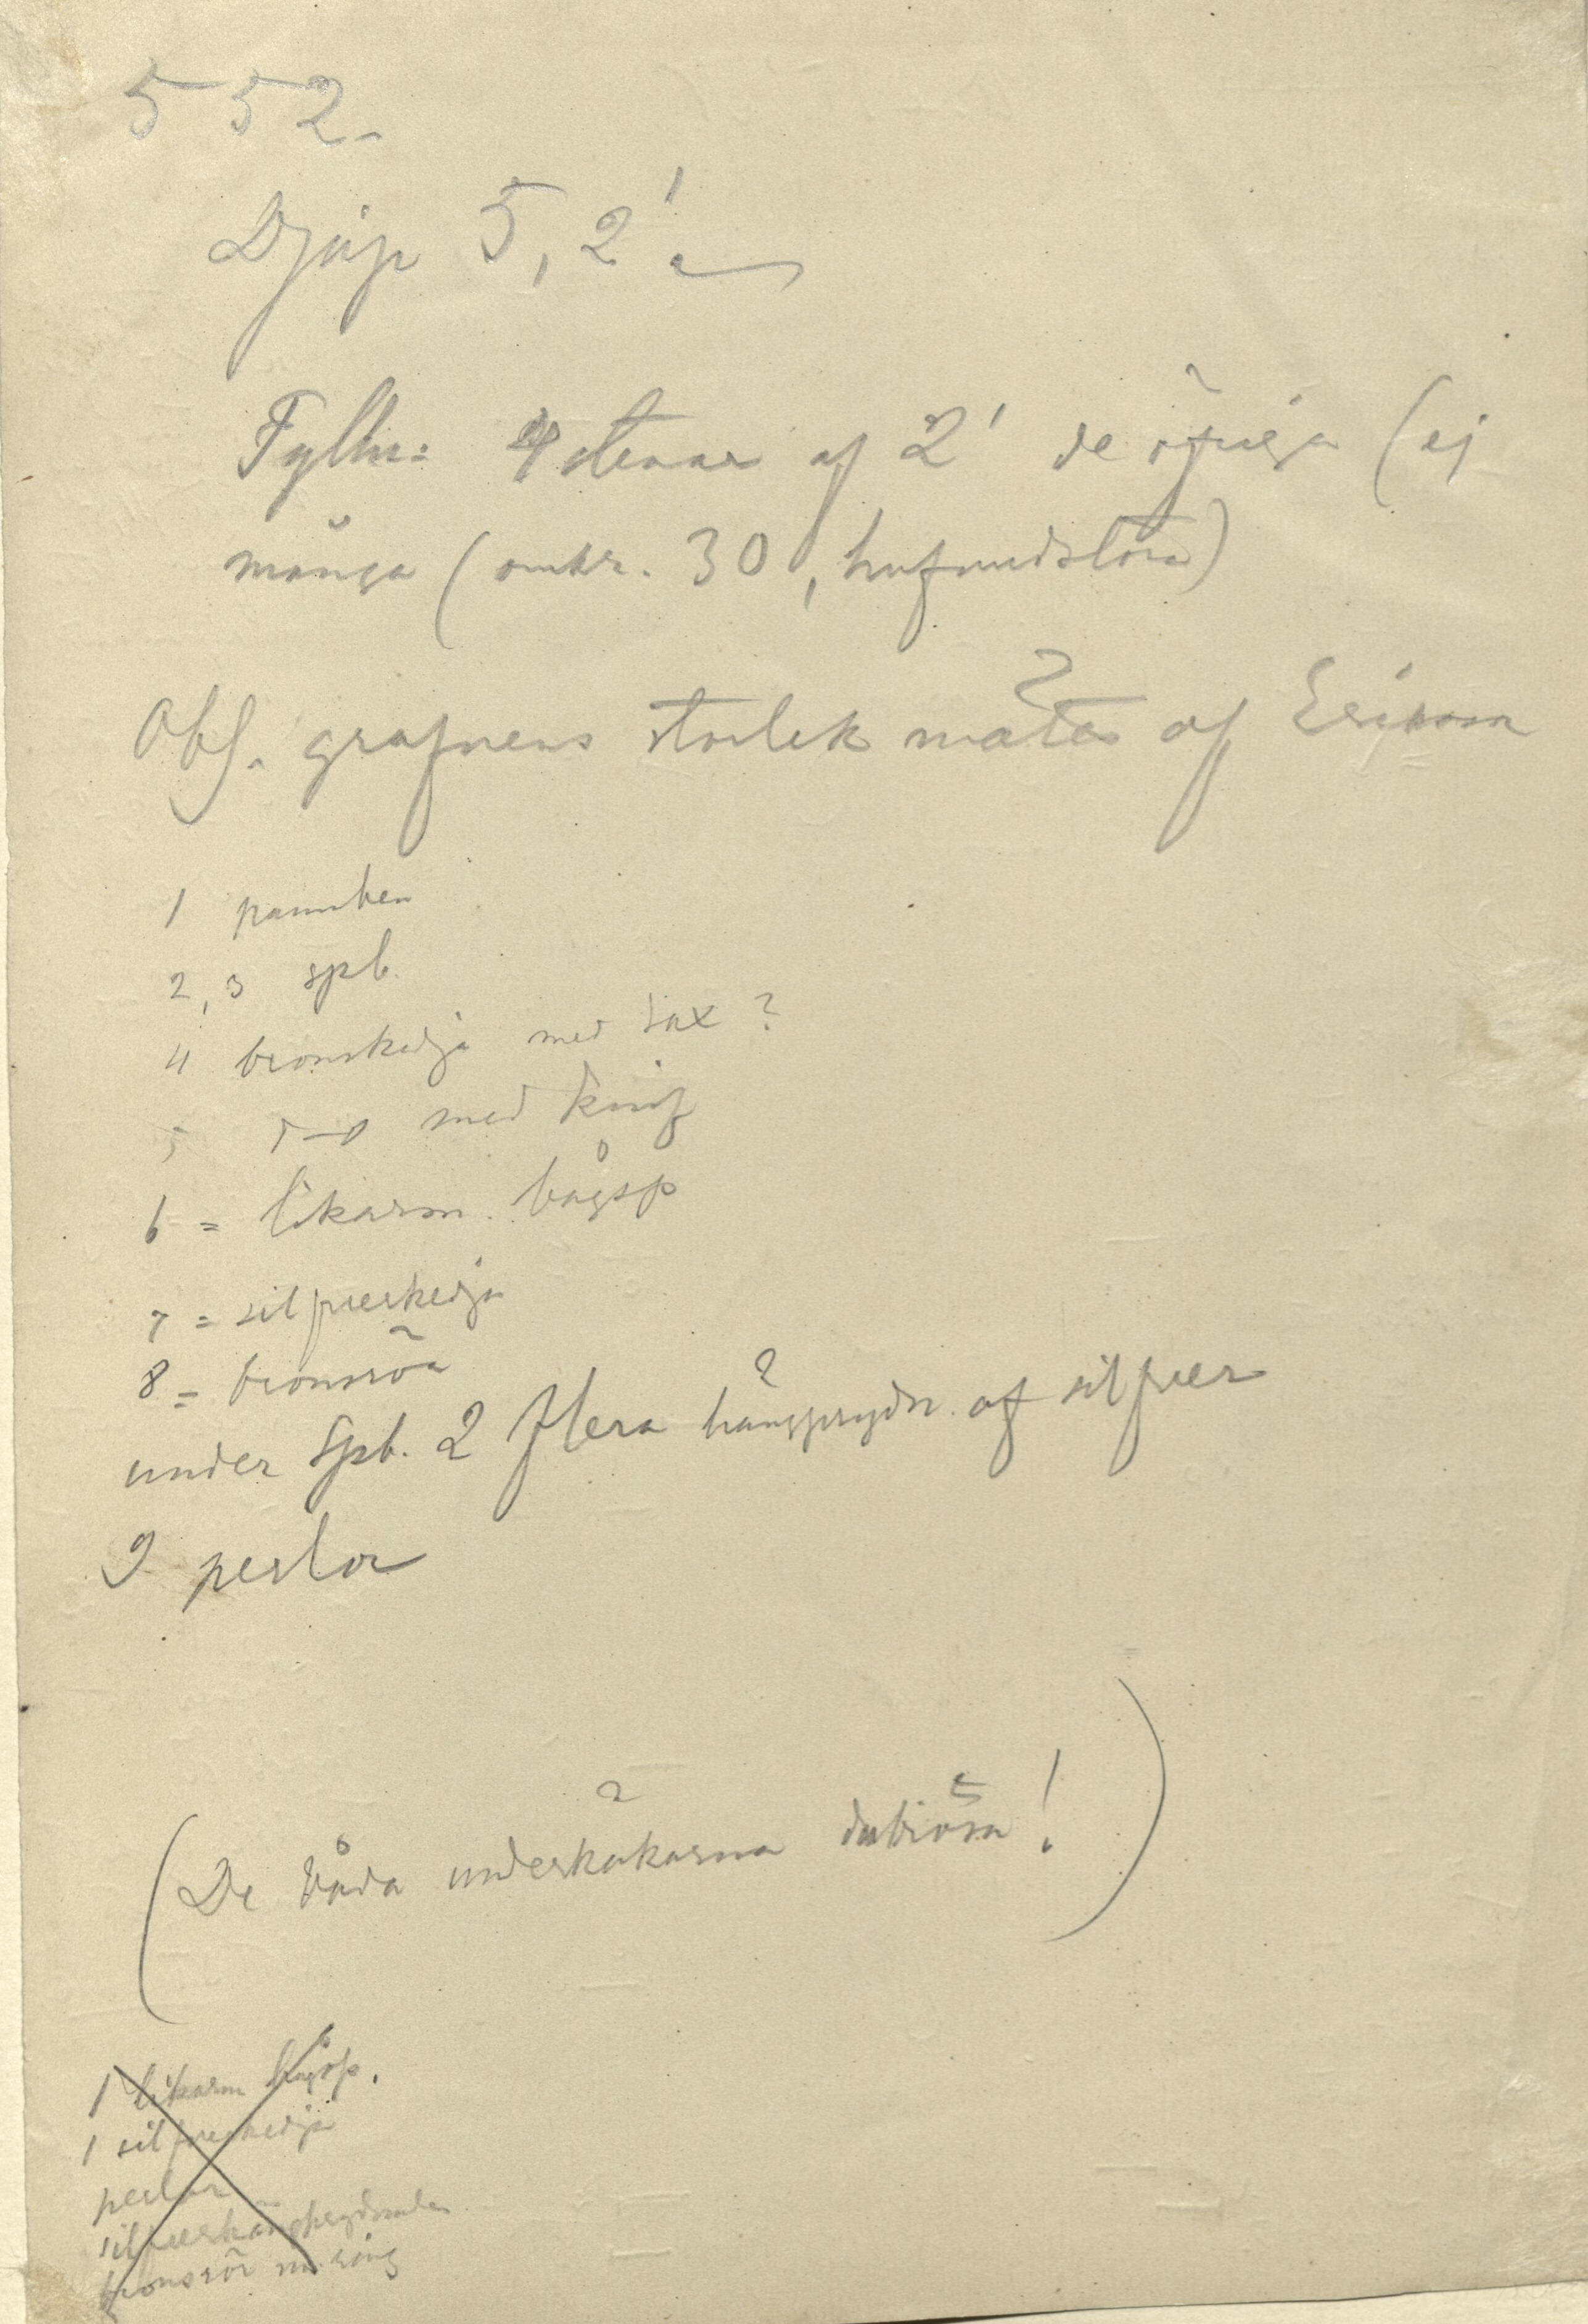 552.
Djup 5,2'
Fylln: 4 stenar af 2' de öfriga (ej
många (omkr. 30, hufvudstora)
Obs. grafvens storlek mätes af Erikson
1 pannben
2, 3 spb.
4 bronskedja med sax?
5 d–o med knif
6 = likarm. bågsp
7 = silfverkedja
8 = bronsrör
under spb. 2 flera hängprydn. af silfver
9 perlor
(De båda underkäkarna dubiösa!)
1 likarm bågsp.
1 silfverkedja
perlor
silfverhängprydnader
bronsrör m. ring